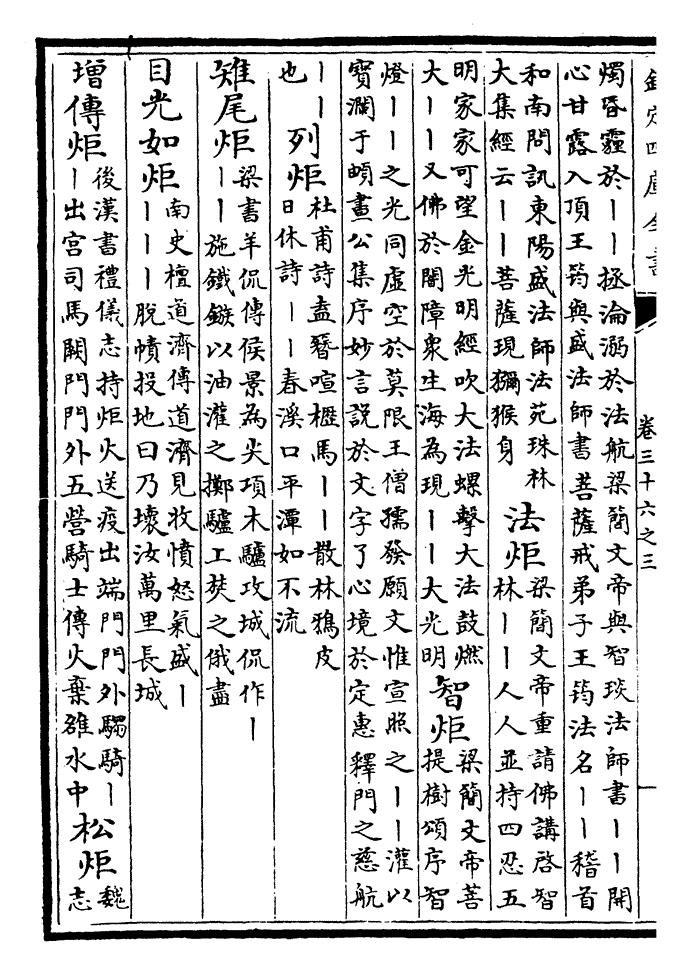 欽定四庫全書
卷三十六之三
燭昏霾於丨丨拯淪溺於法航梁簡文帝與智琰法師書丨丨開
心甘露入頂王筠與盛法師書菩薩戒弟子王筠法名丨丨稽首
和南問訊東陽盛法師法苑珠林
大集經云丨丨菩薩現獼猴身
法炬
梁簡文帝重請佛講啓智
林丨丨人人並持四忍五
明家家可望金光明經吹大法螺擊大法鼓燃
大丨丨又佛於闇障衆生海為現丨丨大光明
智炬
梁簡文帝菩
提樹頌序智
燈丨丨之光同虛空於莫限王僧孺發願文惟宣照之丨丨灌以
寳瀾于頔晝公集序妙言説於文字了心境於定惠釋門之慈航
丨丨
也
列炬
杜甫詩盍簪喧櫪馬丨丨散林鴉皮
日休詩丨丨春溪口平潭如不流
雉尾炬
梁書羊侃傳侯景為尖項木驢攻城侃作丨
丨丨施鐵鏃以油灌之擲驢工焚之俄盡
目光如炬
南史檀道濟傳道濟見收憤怒氣盛丨
丨丨丨脱幘投地曰乃壞汝萬里長城
增傳炬
後漢書禮儀志持炬火送疫出端門門外騶騎丨
丨出宫司馬闕門門外五營騎士傳火棄雒水中
松炬
魏
志